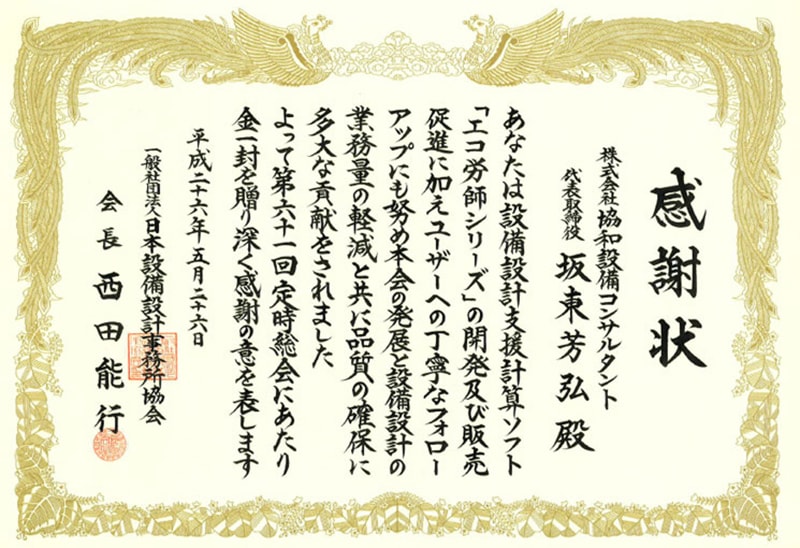 感謝状
株式会社 協和設備コンサルタント
代表取締役 坂東芳弘 殿
あなたは設備設計支援計算ソフト
「エコ労師シリーズ」の開発及び販売
促進に加えユーザーへの丁寧なフォロー
アップにも努め本会の発展と設備設計の
業務量の軽減と共に品質の確保に
多大な貢献をされました
よって第六十一回定時総会にあたり
金一封を贈り深く感謝の意を表します
平成二十六年五月二十六日
一般社団法人日本設備設計事務所協会
会長 西田能行